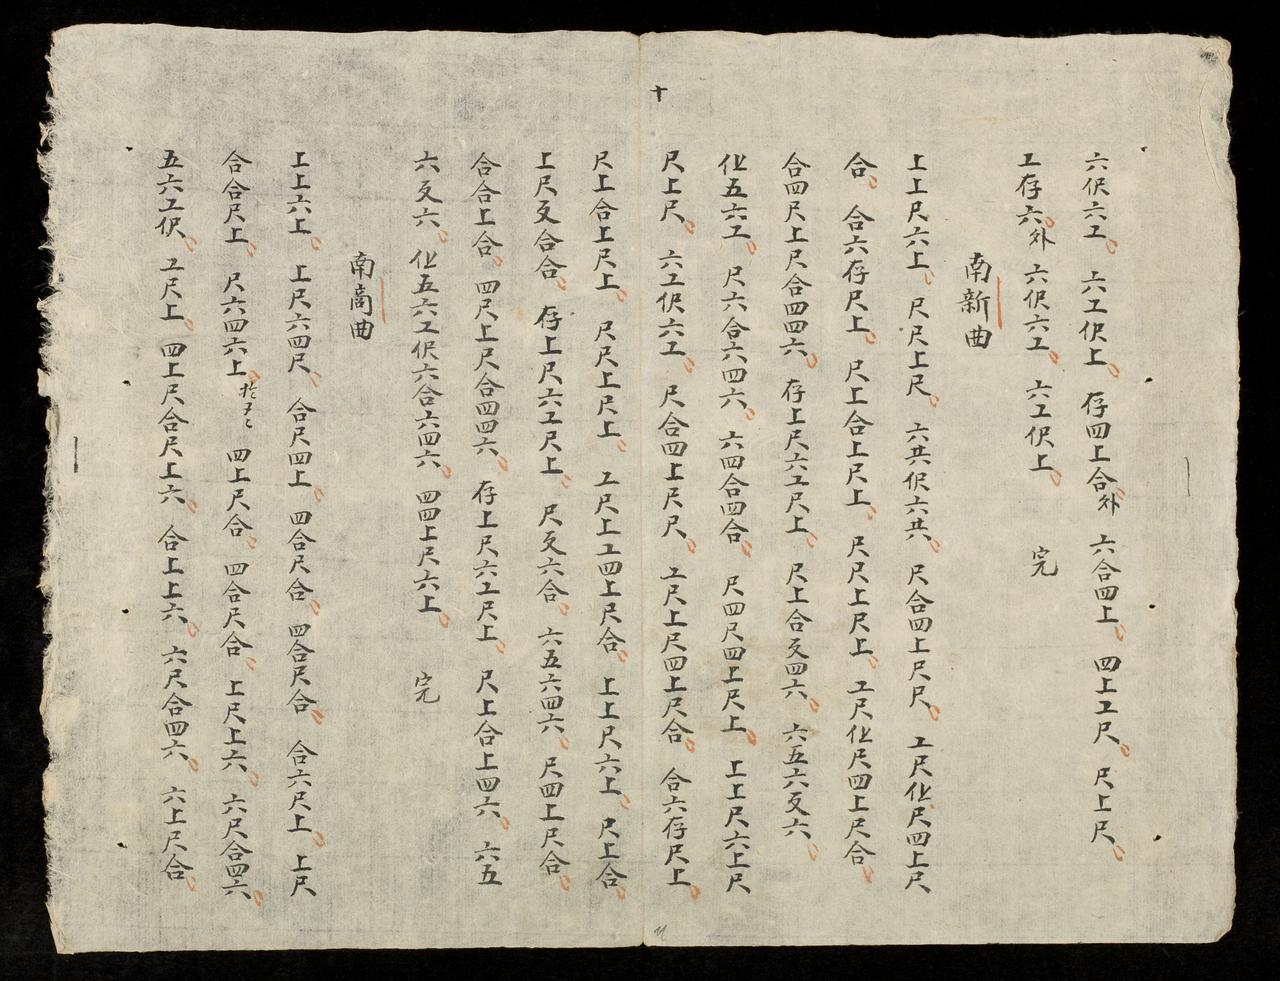 十
六伬六工 六工伬上 存四上合外 六合四上 四上工尺 尺上尺
工存六外 六伬六工 六工伬上 完
南新曲
上上尺六上 尺尺上尺 六共伬六共 尺合四上尺尺 工尺化尺四上尺
合 合六存尺上 尺上合上尺上 尺尺上尺上 工尺化尺四上尺合
合四尺上尺合四四六 存上尺六工尺上 尺上合反四六 六五六反六
化五六工 尺六合六四六 六四合四合 尺四尺四上尺上 上上尺六上尺
尺上尺 六工伬六工 尺合四上尺尺 工尺上尺四上尺合 合六存尺上
尺上合上尺上 尺尺上尺上 工尺上工四上尺合 上上尺六上 尺上合
上尺反合合 存上尺六工尺上 尺反六合 六五六四六 尺四上尺合
合合上合 四尺上尺合四四六 存上尺六工尺上 尺上合上四六 六五
六反六 化五六工伬六合六四六 四四上尺六上 完
南商曲
上上六上 上尺六四尺 合尺四上 四合尺合 四合尺合 合六尺上 上尺
合合尺上 尺六四六上 四上尺合 四合尺合 上尺上六 六尺合四六
五六工伬 工尺上 四上尺合尺上六 合上上六 六尺合四六 六上尺合